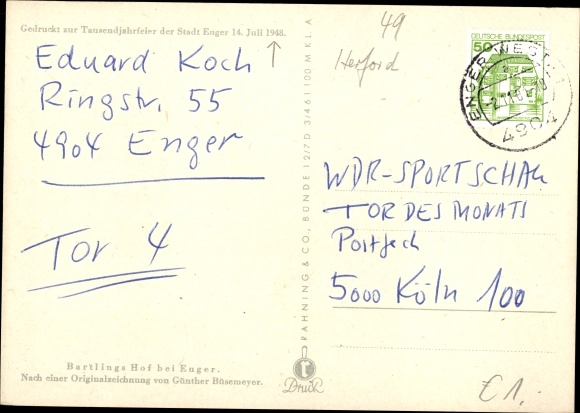 Gedruckt zur Tausendjahrfeier der Stadt Enger 14. Juli 1948.
Eduard Koch
Ringstr. 55
4904 Enger
Tor 4
Bartlings Hof bei Enger.
Nach einer Originalzeichnung von Günther Büsemeyer.
RAHNING & CO., BÜNDE 12/7 D 3/461 100 M KL. A
r
Druck
49
Herford
DEUTSCHE BUNDESPOST
50
ENGER, WESTF
4904
WDR-SPORTSCHAU
TOR DES MONATS
Postfach
5000 Köln 100
€ 1,-